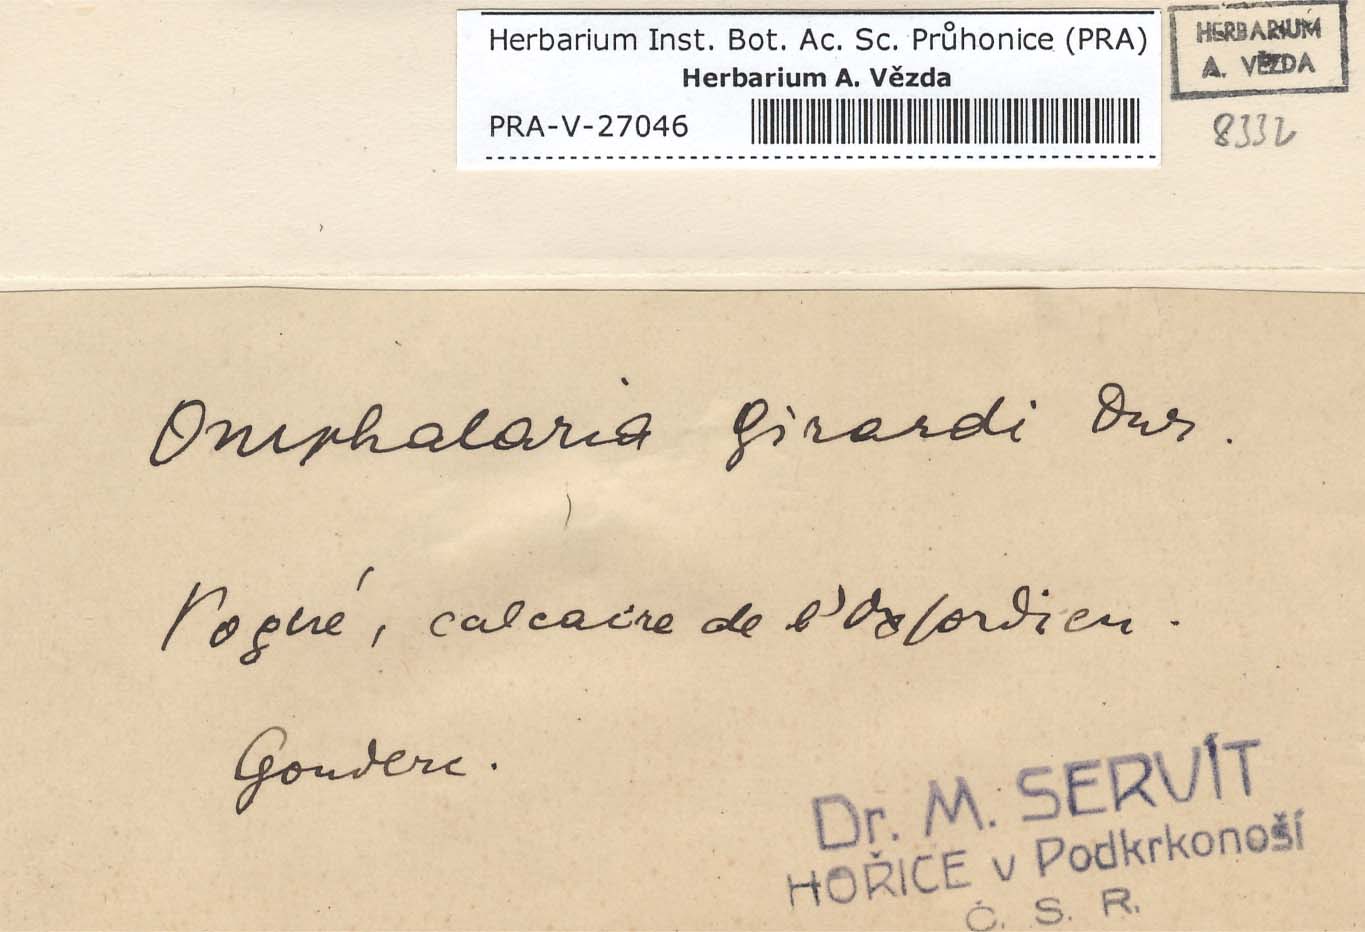 Herbarium Inst. Bot. Ac. Sc. Průhonice (PRA)
Herbarium A. Vězda
PRA-V-27046
HERBARIUM
A. VĚZDA
8332
Omphalaria Girardi Dur.
Vogüé, calcaire de l'Oxfordien.
Gouderc.
Dr. M. SERVÍT
HOŘICE v Podkrkonoší
Č. S. R.